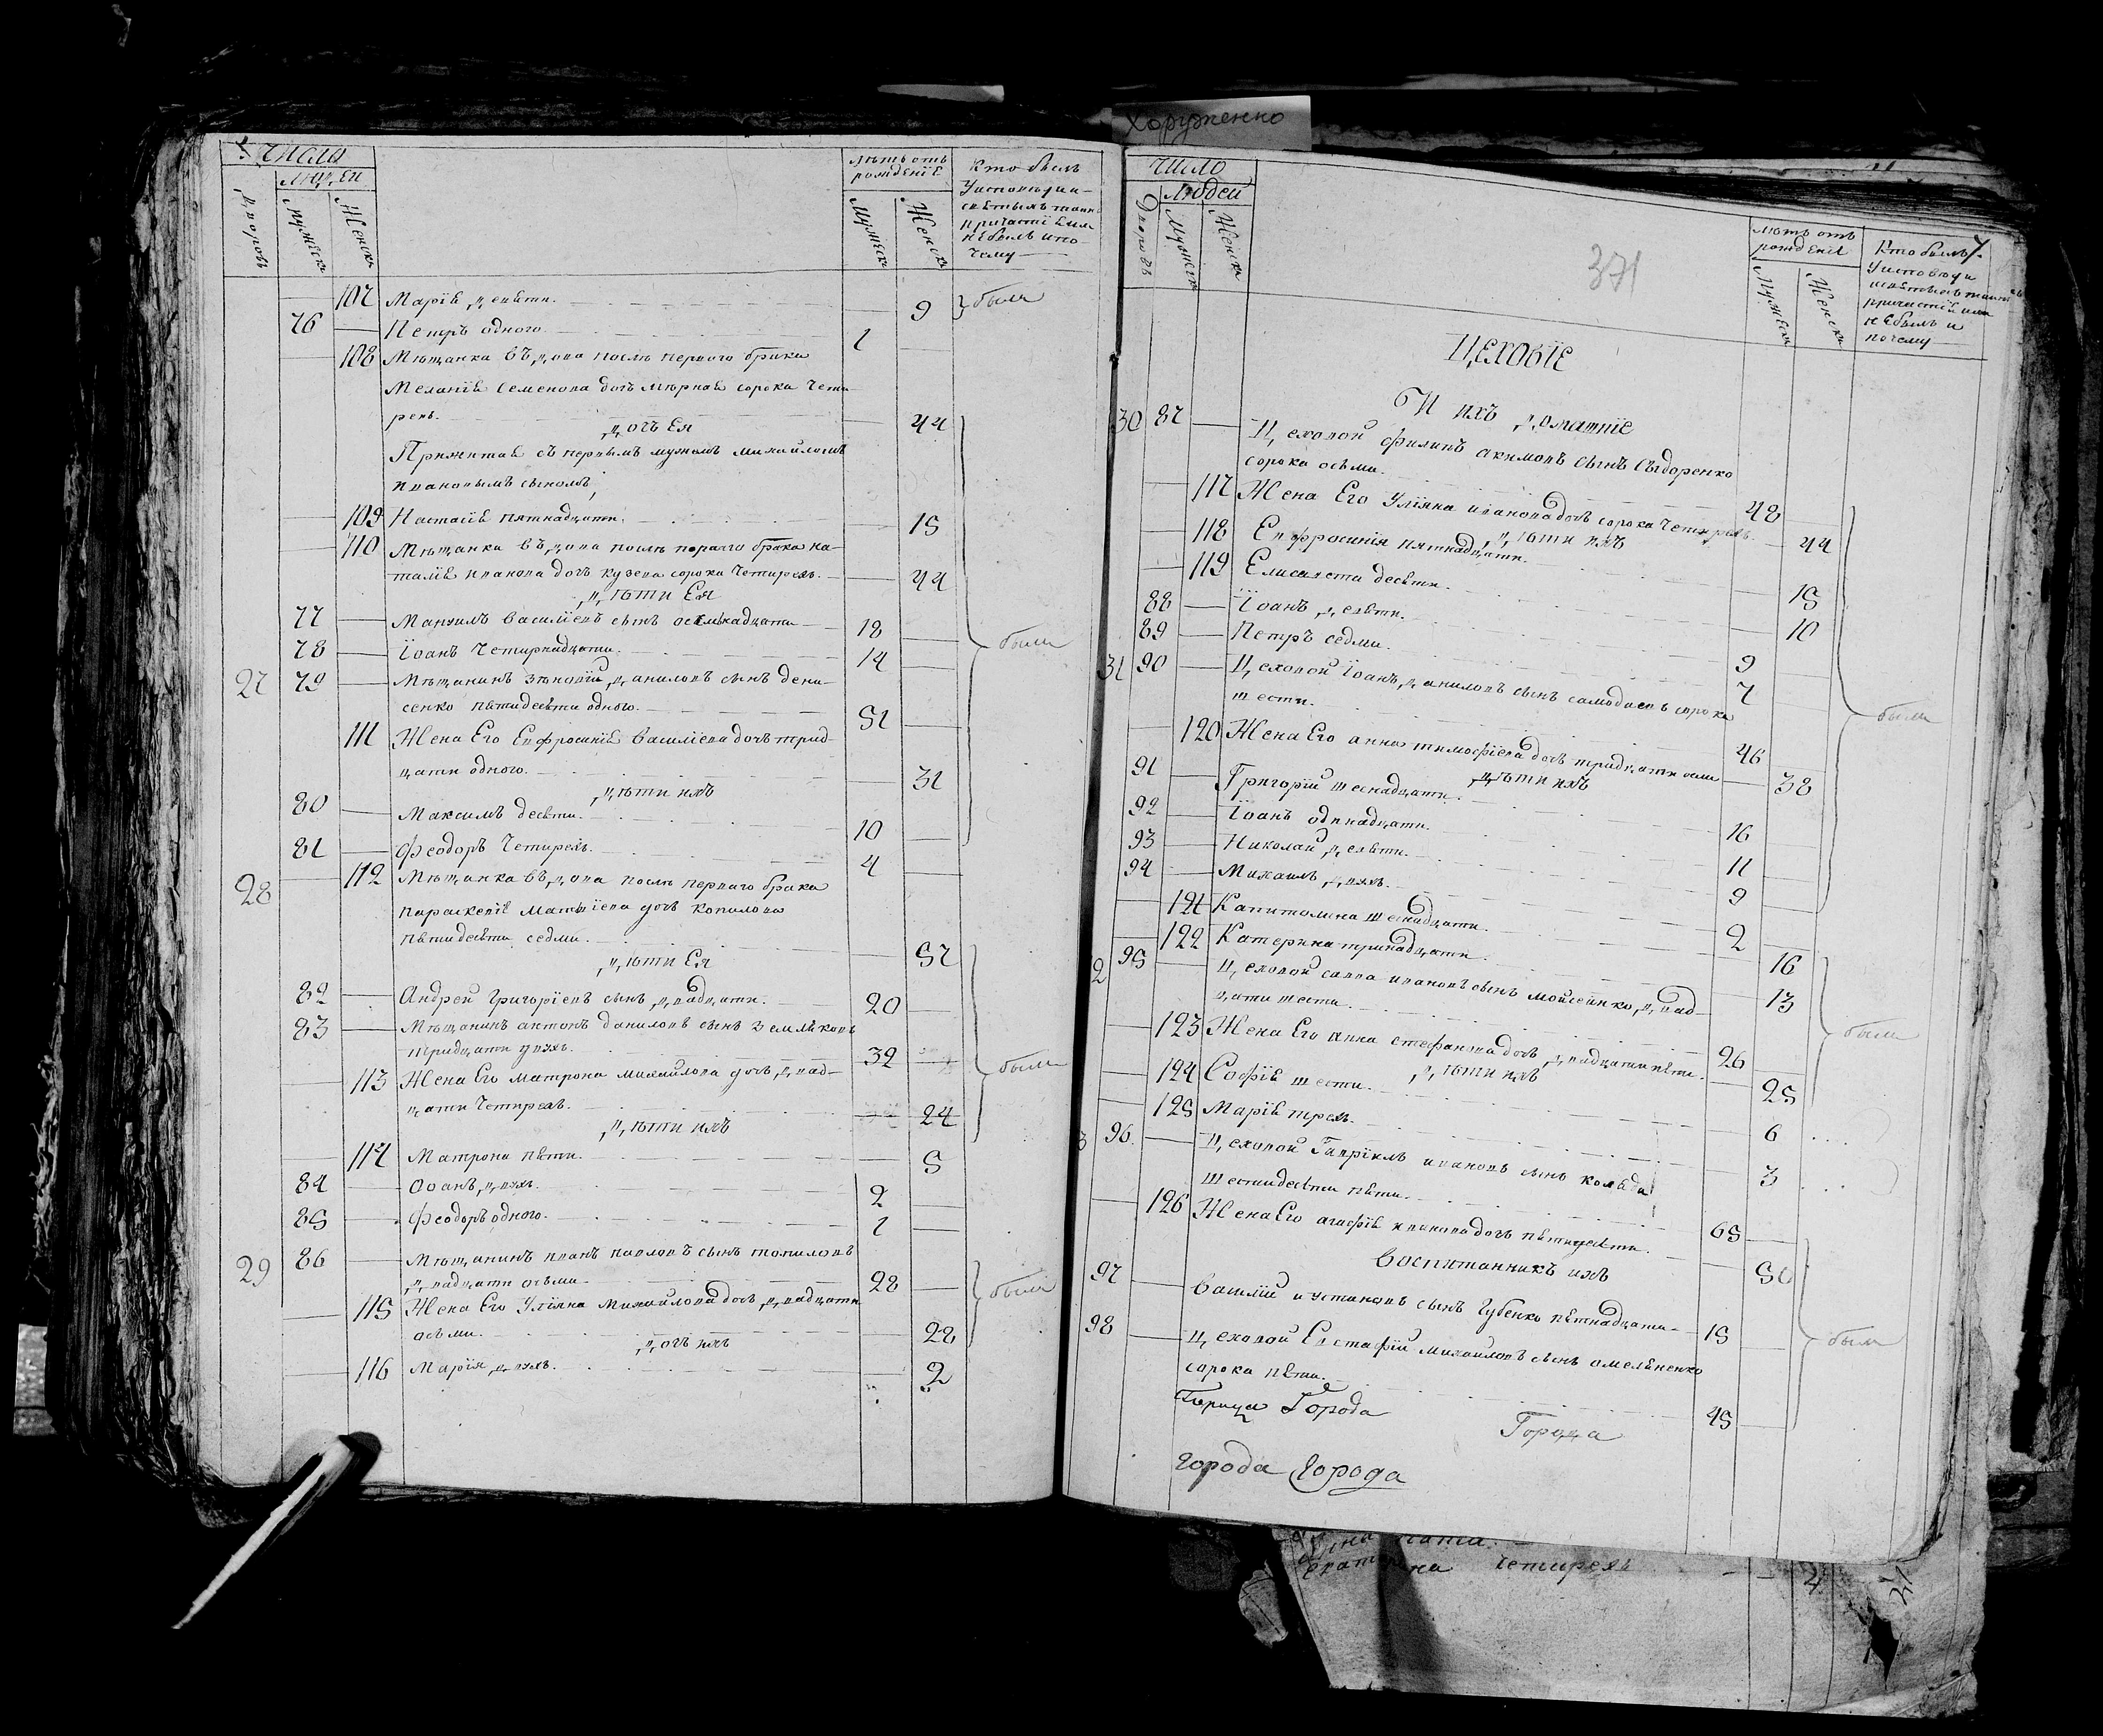 Хоруженко
Числа
Людей
Дворовъ
Мужеск
Женска
Лѣтъ отъ
рожденїе
Мужеск
Женска
Кто былъ
У исповѣди
и не былъ и по-
чему
107 Марїѣ девѣти. 9 были
76 Петръ одного. 1
108 Мѣщанка вѣдова послѣ перваго брака
Меланїѣ Семенова дочь Мѣрнаѣ сорока чети
рехъ. 44
дочь Ея
Прижитаѣ съ первымъ мужемъ Михайломъ
Ивановымъ сыномъ,
109 Настасїѣ пятнадцати. 15
110 Мѣщанка вѣдова послѣ перваго брака На-
талїѣ Иванова дочь Кузева сорока четирехъ. 44
дѣти Ея
77 Мануилъ Василїевъ сынъ осѣмнадцати 18
78 Їоанъ четирнадцати. 14 были
27 79 Мѣщанинъ Зѣновїй Даниловъ сынъ Дени-
сенко пѣтидесѣти одного. 51
111 Жена Его Евфросинїѣ Василїева дочь трид-
цати одного. 31
дѣти ихъ
80 Максимъ десѣти. 10
81 Феодоръ четирехъ. 4
28 112 Мѣщанка вѣдова послѣ перваго брака
Параскевїѣ Матвїева дочь Копилова
пѣтидесѣти седми. 57
дѣти Ея
82 Андрей Григорїевъ сынъ двадцати. 20
83 Мѣщанинъ Антонъ Даниловъ сынъ Землѣковъ
тридцати двухъ. 32
113 Жена Его Матрона Михайлова дочь двад-
цати четирехъ. 24 были
дѣти ихъ
114 Матрона пѣти. 5
84 Иоанъ двухъ. 2
85 Феодоръ одного. 1
29 86 Мѣщанинъ Иванъ Павловъ сынъ Томиловъ
двадцати осѣми. 28
115 Жена Его Улїяна Михайлова дочь двадцати
осѣми. 28 были
дочь ихъ
116 Марїя двухъ. 2
Число
Людей
Дворовъ
Мужеск
Женска
371
Лѣтъ отъ
рожденїѣ
Мужеск
Женска
Кто былъ
У исповѣди
причастїй или
не былъ и
почему
7.
Цеховїе
И ихъ домашнїе
30 87 Цеховой Филипъ Акимовъ сынъ Сѣдоренко
сорока осѣми. 48
117 Жена Его Улїяна Иванова дочь сорока четырехъ. 44
дѣти ихъ
118 Евфросинїя пятнадцати. 15
119 Елисавета десѣти. 10
88 Їоанъ девѣти. 9
89 Петръ седми. 7
31 90 Цеховой Їоанъ Даниловъ сынъ Самодаевъ сорока
шести. 46 были
120 Жена Его Анна Тимофїева дочь тридцати осми 38
дѣти ихъ
91 Григорїй шеснадцати. 16
92 Їоанъ одинадцати. 11
93 Николай девѣти. 9
94 Михаилъ двухъ. 2
121 Капитолина шеснадцати. 16
122 Катерина тринадцати. 13
2 95 Цеховой Савва Ивановъ сынъ Мойсеинко двад-
цати шести. 26
123 Жена Его Анна Стефанова дочь двадцати пѣти. 25 были
дѣти ихъ
124 Софїѣ шести. 6
125 Марїѣ трехъ. 3
3 96. Цеховой Гаврїилъ Ивановъ сынъ Колѣда
шестидесѣти пѣти. 65
126 Жена Его Агафїѣ Иванова дочь пѣтидесѣти. 50
Воспитанникъ ихъ
97 Василїй Иустиновъ сынъ Губенко пѣтнадцати 15
98 Цеховой Евстафїй Михайловъ сынъ Омелѣненко были
сорока пѣти. 45
Города
Города
города Города
четирехъ 4